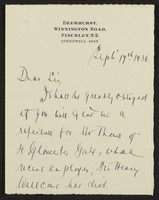 DEERHURST,
WINNINGTON ROAD,
FINCHLEY, N.2.
SPEEDWELL
Sept 19th 1936
Dear Sir,
I shall be greatly obliged
if you will give me a
reference for
Gloucester Gate, whose
recent employer, Sir Henry
Wellcome has died.